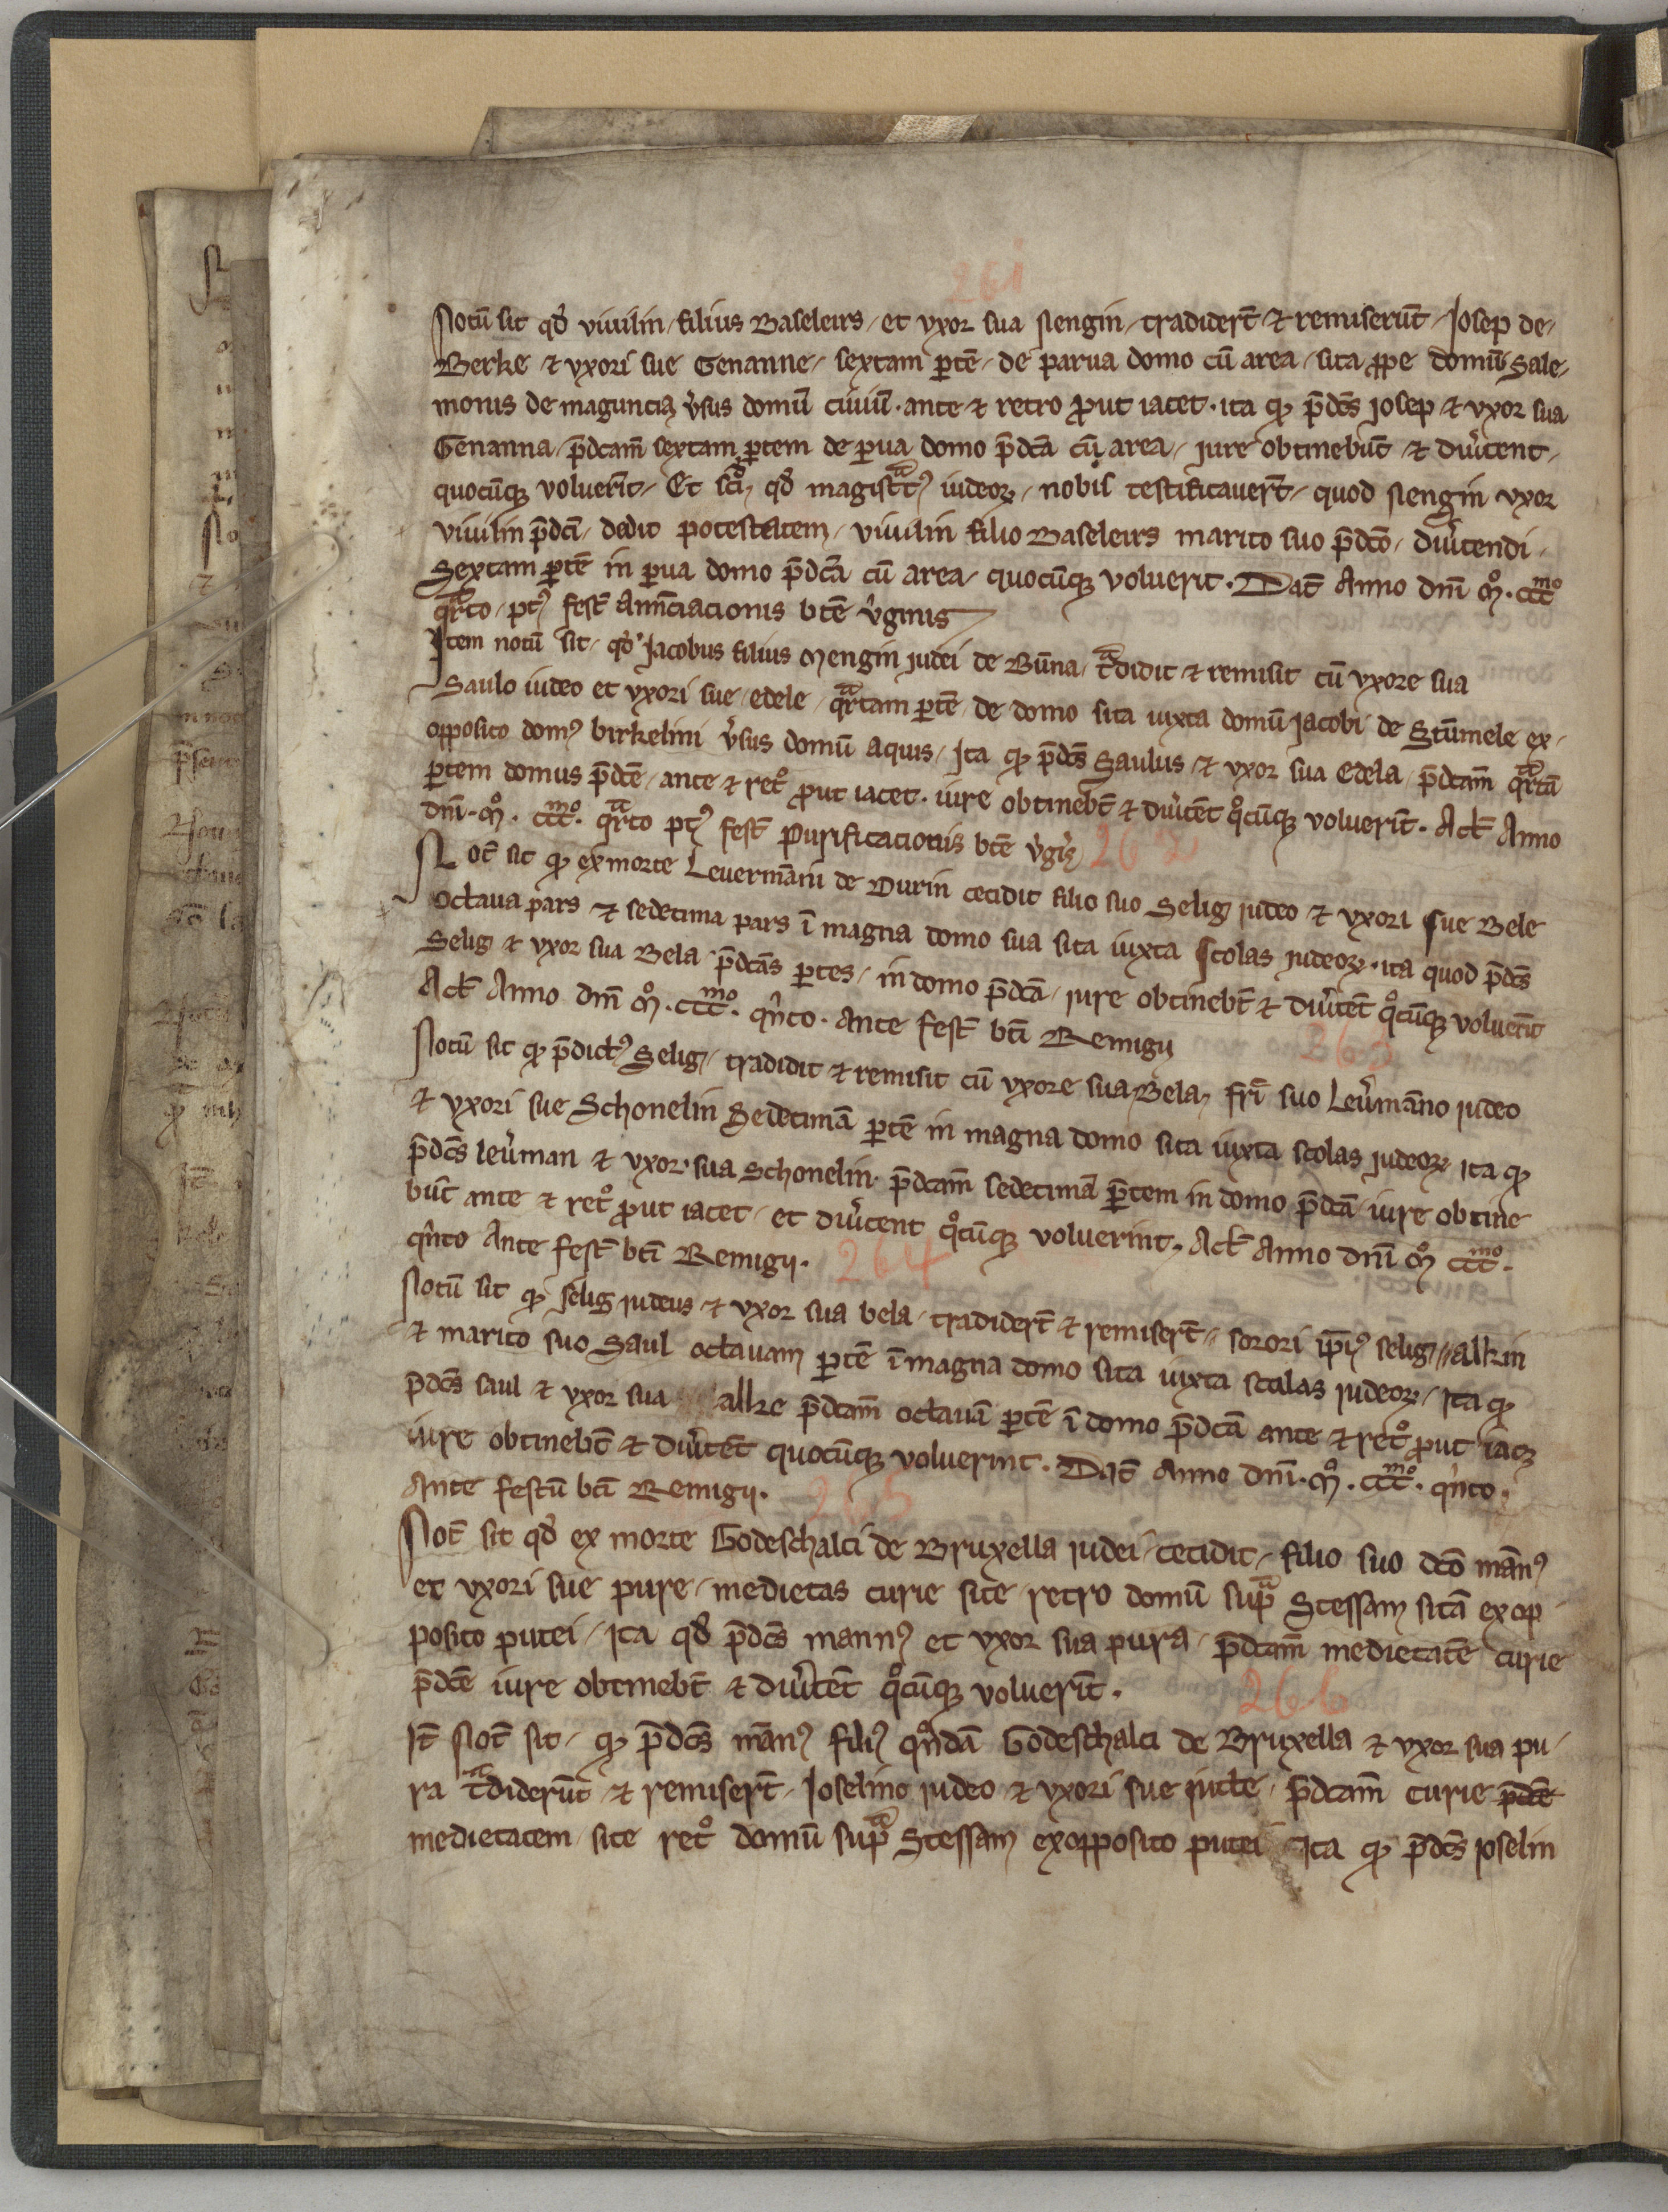 261
Notū sit qd̄ viuilin filius Baseleirs et vxor sua Nengin tradiderūt ⁊ remiserūt Josep de
Berke ⁊ vxori sue Genanne sextam ꝑtē de parua domo cū area sita ꝓpe domū Sale
monis de maguncia v̓sus domū ciuiū · ante ⁊ retro ꝓut iacet · ita ꝙ p̄dc̄s Josep ⁊ vxor sua
Genanna p̄dcam̄ sextam ꝑtem de ꝑua domo p̄dcā cū area iure obtinebūt ⁊ diu̓tent
quocūqꝫ voluerīt Et sciͩ qd̄ magistᵃtꝰ iudeoꝝ nobis testificauerūt quod Nengin vxor
viuilin p̄dci dedit potestatem viuilin filio Baseleirs marito suo p̄dcō diu̓tendi
Sextam ꝑtē in ꝑua domo p̄dcā cū area quocūqꝫ voluerit · Dat̄ Anno dnī M̊ · ccc̄ᵐᵒ
qᵃrto ptꝰ fest̄ annūciacionis btē v̓ginis
Item notū sit qd̄ Jacobus filius Mengin iudei de Būna tᵃdidit ⁊ remisit cū vxore sua
Saulo iudeo et vxori sue edele qᵃrtam ꝑtē de domo sita iuxta domū Jacobi de Stūmele ex
opposito domꝰ birkelini v̓sus domū aquis Ita ꝙ p̄dc̄s Saulus ⁊ vxor sua Edela p̄dcam̄ qᵃrtā
ꝑtem domus p̄dcē ante ⁊ retᵒ ꝓut iacet · iure obtinebt̄ ⁊ diu̓tēt qᵒcūqꝫ voluerīt · Act̄ Anno
dnī · M̊ · ccc̄ᵐᵒ · qᵃrto ptꝰ fest̄ Purificacionis btē v̓gīs 262
Not̄ sit ꝙ ex morte Leuermāni de Durin cecidit filio suo Selig iudeo ⁊ vxori sue Bele
octaua pars ⁊ sedecima pars ī magna domo sua sita iuxta scolas iudeoꝝ · ita quod p̄dc̄s
Selig ⁊ vxor sua Bela p̄dcās ꝑtes in domo p̄dcā iure obtinebt̄ ⁊ diu̓tēt qᵒcūqꝫ voluerīt
Act̄ Anno dnī M̊ · ccc̄ᵐᵒ · qⁱnto · Ante fest̄ bti Remigij
263
Notū sit ꝙ p̄dictꝰ Selig tradidit ⁊ remisit cū vxore sua Bela frī suo Leu̓māno iudeo
⁊ vxori sue Schonelin Sedecimā ꝑtē in magna domo sita iuxta scolas iudeoꝝ ita ꝙ
p̄dc̄s leu̓man ⁊ vxor sua Schonelin p̄dcam̄ sedecimā ꝑtem in domo p̄dcā iure obtine
būt ante ⁊ retᵒ ꝓut iacet et diu̓tent qᵒcūqꝫ voluerint · Act̄ Anno dnī M̊ ccc̄ᵐᵒ ·
qⁱnto Ante fest̄ bti Remigij · 264
Notū sit ꝙ selig iudeus ⁊ vxor sua bela tradiderūt ⁊ remiserūt sorori ip̄iꝰ selig alkin
⁊ marito suo Saul octauam ꝑtē ī magna domo sita iuxta scolas iudeoꝝ Ita ꝙ
p̄dc̄s saul ⁊ vxor sua alke p̄dcam̄ octauā ꝑtē ī domo p̄dcā ante ⁊ retᵒ ꝓut iacꝫ
iure obtinebt̄ ⁊ diu̓tēt quocūqꝫ voluerint · Dat̄ Anno dnī · M̊ · ccc̄ᵐᵒ · qⁱnto ·
Ante festū bti Remigij · 265
Not̄ sit qd̄ ex morte Godeschalci de Bruxella iudei cecidit filio suo dcō mānꝰ
et vxori sue pure medietas curie site retro domū supᵃ Stessam sitā ex op
posito putei ita qd̄ p̄dc̄s mannꝰ et vxor sua pura p̄dcam̄ medietatē curie
p̄dcē iure obtinebt̄ ⁊ diu̓tēt qᵒcūqꝫ voluerīt · 266
It̄ Not̄ sit ꝙ p̄dc̄s mānꝰ filiꝰ qᵒndā Godeschalci de Bruxella ⁊ vxor sua pu
ra tᵃdiderūt ⁊ remiserūt Joselino iudeo ⁊ vxori sue iutte p̄dcam̄ curie p̄dcē
medietatem site retᵒ domū supᵃ Stessam ex opposito putei Ita ꝙ p̄dc̄s Joselin